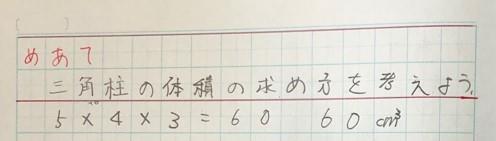 めあて
三角柱の体積の求め方を考えよう。
5×4×3=60 60cm³